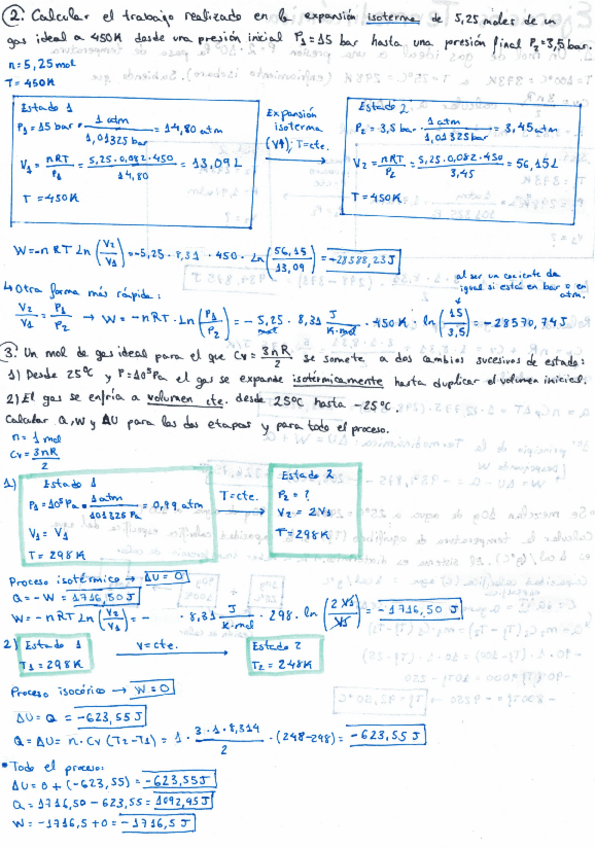 2. Calcular el trabajo realizado en la expansión isoterma de 5,25 moles de un
gas ideal a 450K desde una presión inicial P1 = 15 bar hasta una presión final P2 = 3,5 bar.
n = 5,25 mol
T = 450K
Estado 1
P1 = 15 bar · 1 atm / 1,01325 bar = 14,80 atm
V1 = nRT / P1 = 5,25 · 0,082 · 450 / 14,80 = 13,09 L
T = 450K
Expansión
isoterma
(V↑); T=cte.
Estado 2
P2 = 3,5 bar · 1 atm / 1,01325 bar = 3,45 atm
V2 = nRT / P2 = 5,25 · 0,082 · 450 / 3,45 = 56,15 L
T = 450K
W = -nRT Ln (V2/V1) = -5,25 · 8,31 · 450 · Ln (56,15/13,09) = -28588,23 J
↳ Otra forma más rápida:
al ser un cociente da
igual si está en bar o en
atm.
V2/V1 = P1/P2 → W = -nRT · Ln (P1/P2) = -5,25 mol · 8,31 J/K·mol · 450 K · ln (15/3,5) = -28570,74 J
3. Un mol de gas ideal para el que Cv = 3nR/2 se somete a dos cambios sucesivos de estado:
1) Desde 25ºC y P = 10⁵ Pa el gas se expande isotérmicamente hasta duplicar el volumen inicial.
2) El gas se enfría a volumen cte. desde 25ºC hasta -25ºC.
Calcular Q, W y ΔU para las dos etapas y para todo el proceso.
n = 1 mol
Cv = 3nR/2
1)
Estado 1
P1 = 10⁵ Pa · 1 atm / 101325 Pa = 0,99 atm
V1 = V1
T = 298K
T = cte.
Estado 2
P2 = ?
V2 = 2V1
T = 298K
Proceso isotérmico → ΔU = 0
Q = -W = 1716,50 J
W = -nRT Ln (V2/V1) = - · 8,31 J/K·mol · 298 · ln (2V1/V1) = -1716,50 J
2) Estado 1
T1 = 298K
V = cte.
Estado 2
T2 = 248K
Proceso isocórico → W = 0
ΔU = Q = -623,55 J
Q = ΔU = n · Cv (T2 - T1) = 1 · 3 · 1 · 8,314 / 2 · (248 - 298) = -623,55 J
• Todo el proceso:
ΔU = 0 + (-623,55) = -623,55 J
Q = 1716,50 - 623,55 = 1092,95 J
W = -1716,5 + 0 = -1716,5 J